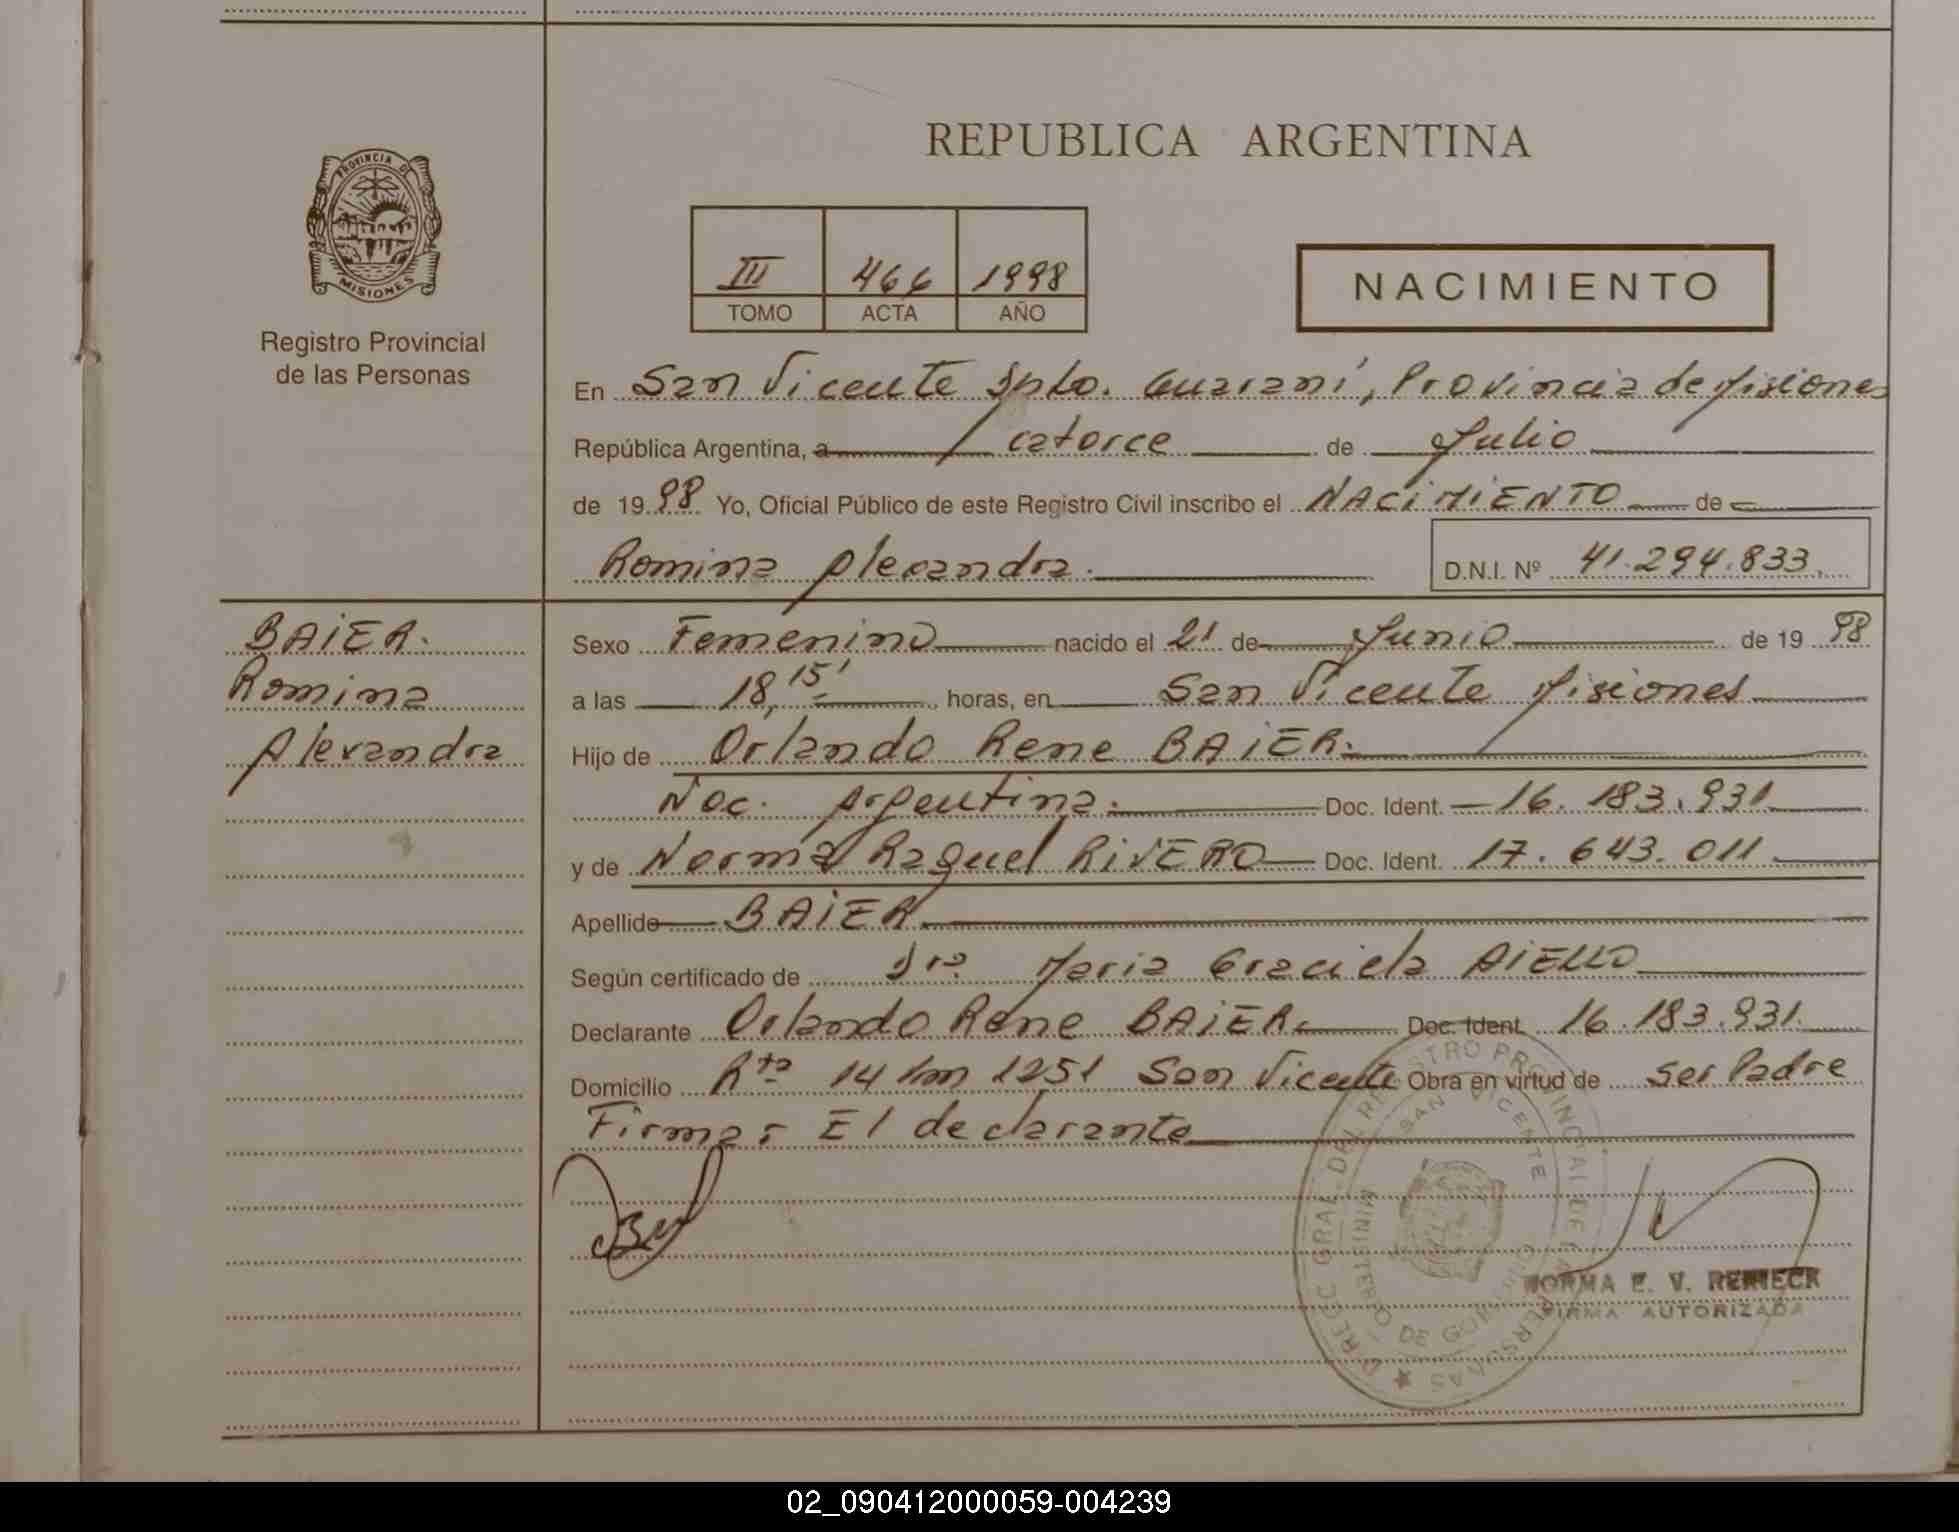 REPUBLICA ARGENTINA
PROVINCIA DE
MISIONES
Registro Provincial
de las Personas
III 466 1998
TOMO ACTA AÑO
NACIMIENTO
En San Vicente Dpto. Guaraní, Provincia de Misiones
República Argentina, a catorce de Julio
de 1998 Yo, Oficial Público de este Registro Civil inscribo el NACIMIENTO de
Romina Alexandra. D.N.I. Nº 41.294.833.
BAIER.
Romina
Alexandra
Sexo Femenino nacido el 21 de Junio de 1998
a las 18,15' horas, en San Vicente Misiones
Hijo de Orlando Rene BAIER.
Nac. Argentina. Doc. Ident. 16.183.931
y de Norma Raquel RIVERO Doc. Ident. 17.643.011
Apellido BAIER
Según certificado de Dra Maria Graciela AIELLO
Declarante Orlando Rene BAIER Doc. Ident. 16.183.931
Domicilio Rta 14 km 1251 San Vicente Obra en virtud de ser Padre
Firma: El declarante
DIRECC. GRAL. DEL REGISTRO PROVINCIAL DE LAS PERSONAS
SAN VICENTE
MINISTERIO DE GOBIERNO
NORMA E. V.
FIRMA AUTORIZADA
02_090412000059-004239